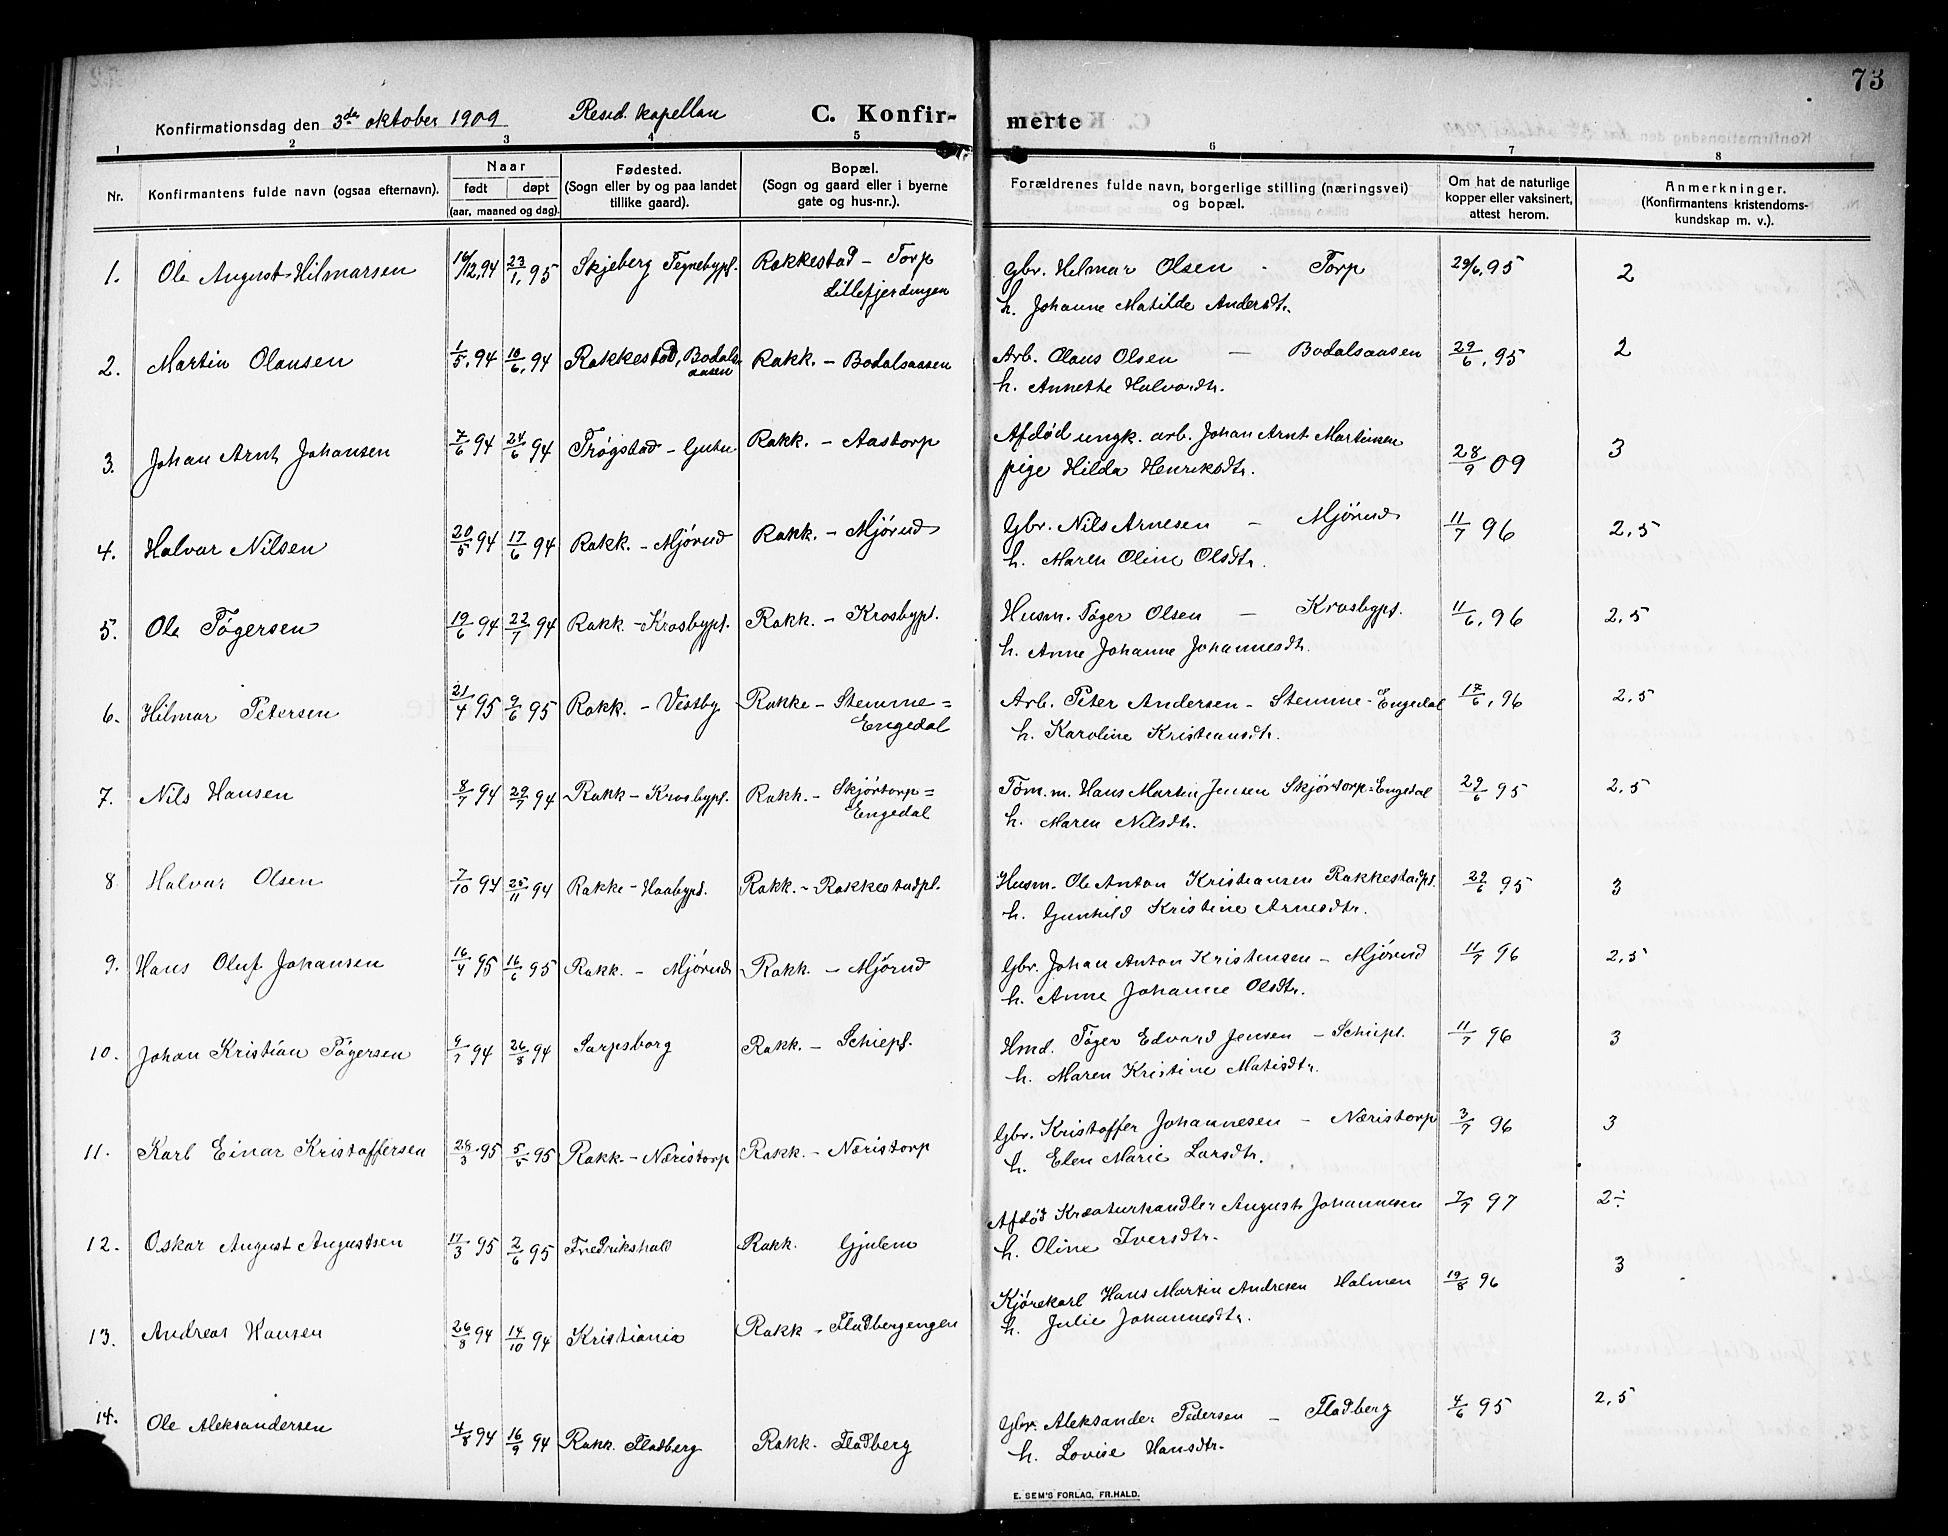 73
Konfirmationsdag den 3die oktober 1909 Resid. kapellan C. Konfir- merte
1 2 3 4 5 6 7 8
Nr. Konfirmantens fulde navn (ogsaa efternavn). Naar født døpt (aar, maaned og dag). Fødested. (Sogn eller by og paa landet tillike gaard). Bopæl. (Sogn og gaard eller i byerne gate og hus-nr.). Forældrenes fulde navn, borgerlige stilling (næringsvei) og bopæl. Om hat de naturlige kopper eller vaksinert, attest herom. Anmerkninger. (Konfirmantens kristendomskundskap m. v.).
1. Ole August Hilmarsen 12,94 23/1,95 Skjeberg Tegnebypl. Rakkestad - Torp Gbr. Hilmar Olsen - Torp 29/6,95 2
Lillefjerdingen h. Johanne Matilde Andersdtr.
2. Martin Olausen 1/5,94 10/6,94 Rakkestad, Bodalsaasen Rakk. - Bodalsaasen Arb. Olaus Olsen - Bodalsaasen 29/6,95 2
h. Annette Halvordtr.
3. Johan Arnt Johansen 7/6 94 24/6 94 Trøgstad - Rakk. - Aastorp Afdød ungk. arb. Johan Arnt Martinsen 28/9 09 3
pige Hilda Henriksdtr.
4. Halvar Nilsen 20/5 94 17/6 94 Rakk. - Mjørud Rakk. - Mjørud Gbr. Nils Arnesen - Mjørud 11/7 96 2,5
h. Maren Oline Olsdtr.
5. Ole Tøgersen 19/6 94 22/7 94 Rakk. - Krosbypl. Rakk. - Krosbypl. Husm. Tøger Olsen - Krosbypl. 11/6,96 2,5
h. Anne Johanne Johannesdtr.
6. Hilmar Petersen 21/4 95 9/6 95 Rakk. - Vestby Rakke - Stemme= Engedal Arb. Peter Andersen - Stemme-Engedal 17/6,96 2,5
h. Karoline Kristiansdtr.
7. Nils Hansen 8/7 94 29/7 94 Rakk - Krosbypl. Rakk. - Skjørtorp= Engedal Tøm.m. Hans Martin Jensen Skjørtorp=Engedal 29/6 95 2,5
h. Maren Nilsdtr.
8 Halvar Olsen 7/10 94 25/11 94 Rakke - Haabypl. Rakk. - Rakkestadpl. Husm. Ole Anton Kristiansen Rakkestadpl. 29/6 95 3
h. Gunhild Kristine Arnesdtr.
9. Hans Oluf Johansen 16/4 95 16/6 95 Rakk. - Mjørud Rakk. - Mjørud Gbr. Johan Anton Kristensen - Mjørud 11/7 96 2,5
h. Anne Johanne Olsdtr.
10. Johan Kristian Tøgersen 9/7 94 26/8 94 Sarpsborg Rakk. - Schiepl. Hmd. Tøger Edvard Jensen - Schiepl. 11/7 96 3
h. Maren Kristine Matisdtr.
11. Karl Einar Kristoffersen 28/3 95 5/5 95 Rakk. - Næristorp Rakk. - Næristorp Gbr. Kristoffer Johannesen - Næristorp 3/7 96 3
h. Elen Marie Larsdtr.
12. Oskar August Augustsen 17/3 95 2/6 95 Fredrikshald Rakk. Gjulem Afdød Kreaturhandler August Johannesen 7/7 97 2÷
h. Oline Iversdtr.
13. Andreas Hansen 26/8 94 14/10 94 Kristiania Rakk - Fladbergengen Kjørekarl Hans Martin Andresen Holmen 19/8 96 3
h. Julie Johannesdtr.
14. Ole Aleksandersen 4/8 94 16/9 94 Rakk. Fladberg Rakk. Fladberg Gbr. Aleksander Pedersen - Fladberg 4/6 95 2,5
h. Lovise Hansdtr.
E. SEM'S FORLAG, FR.HALD.